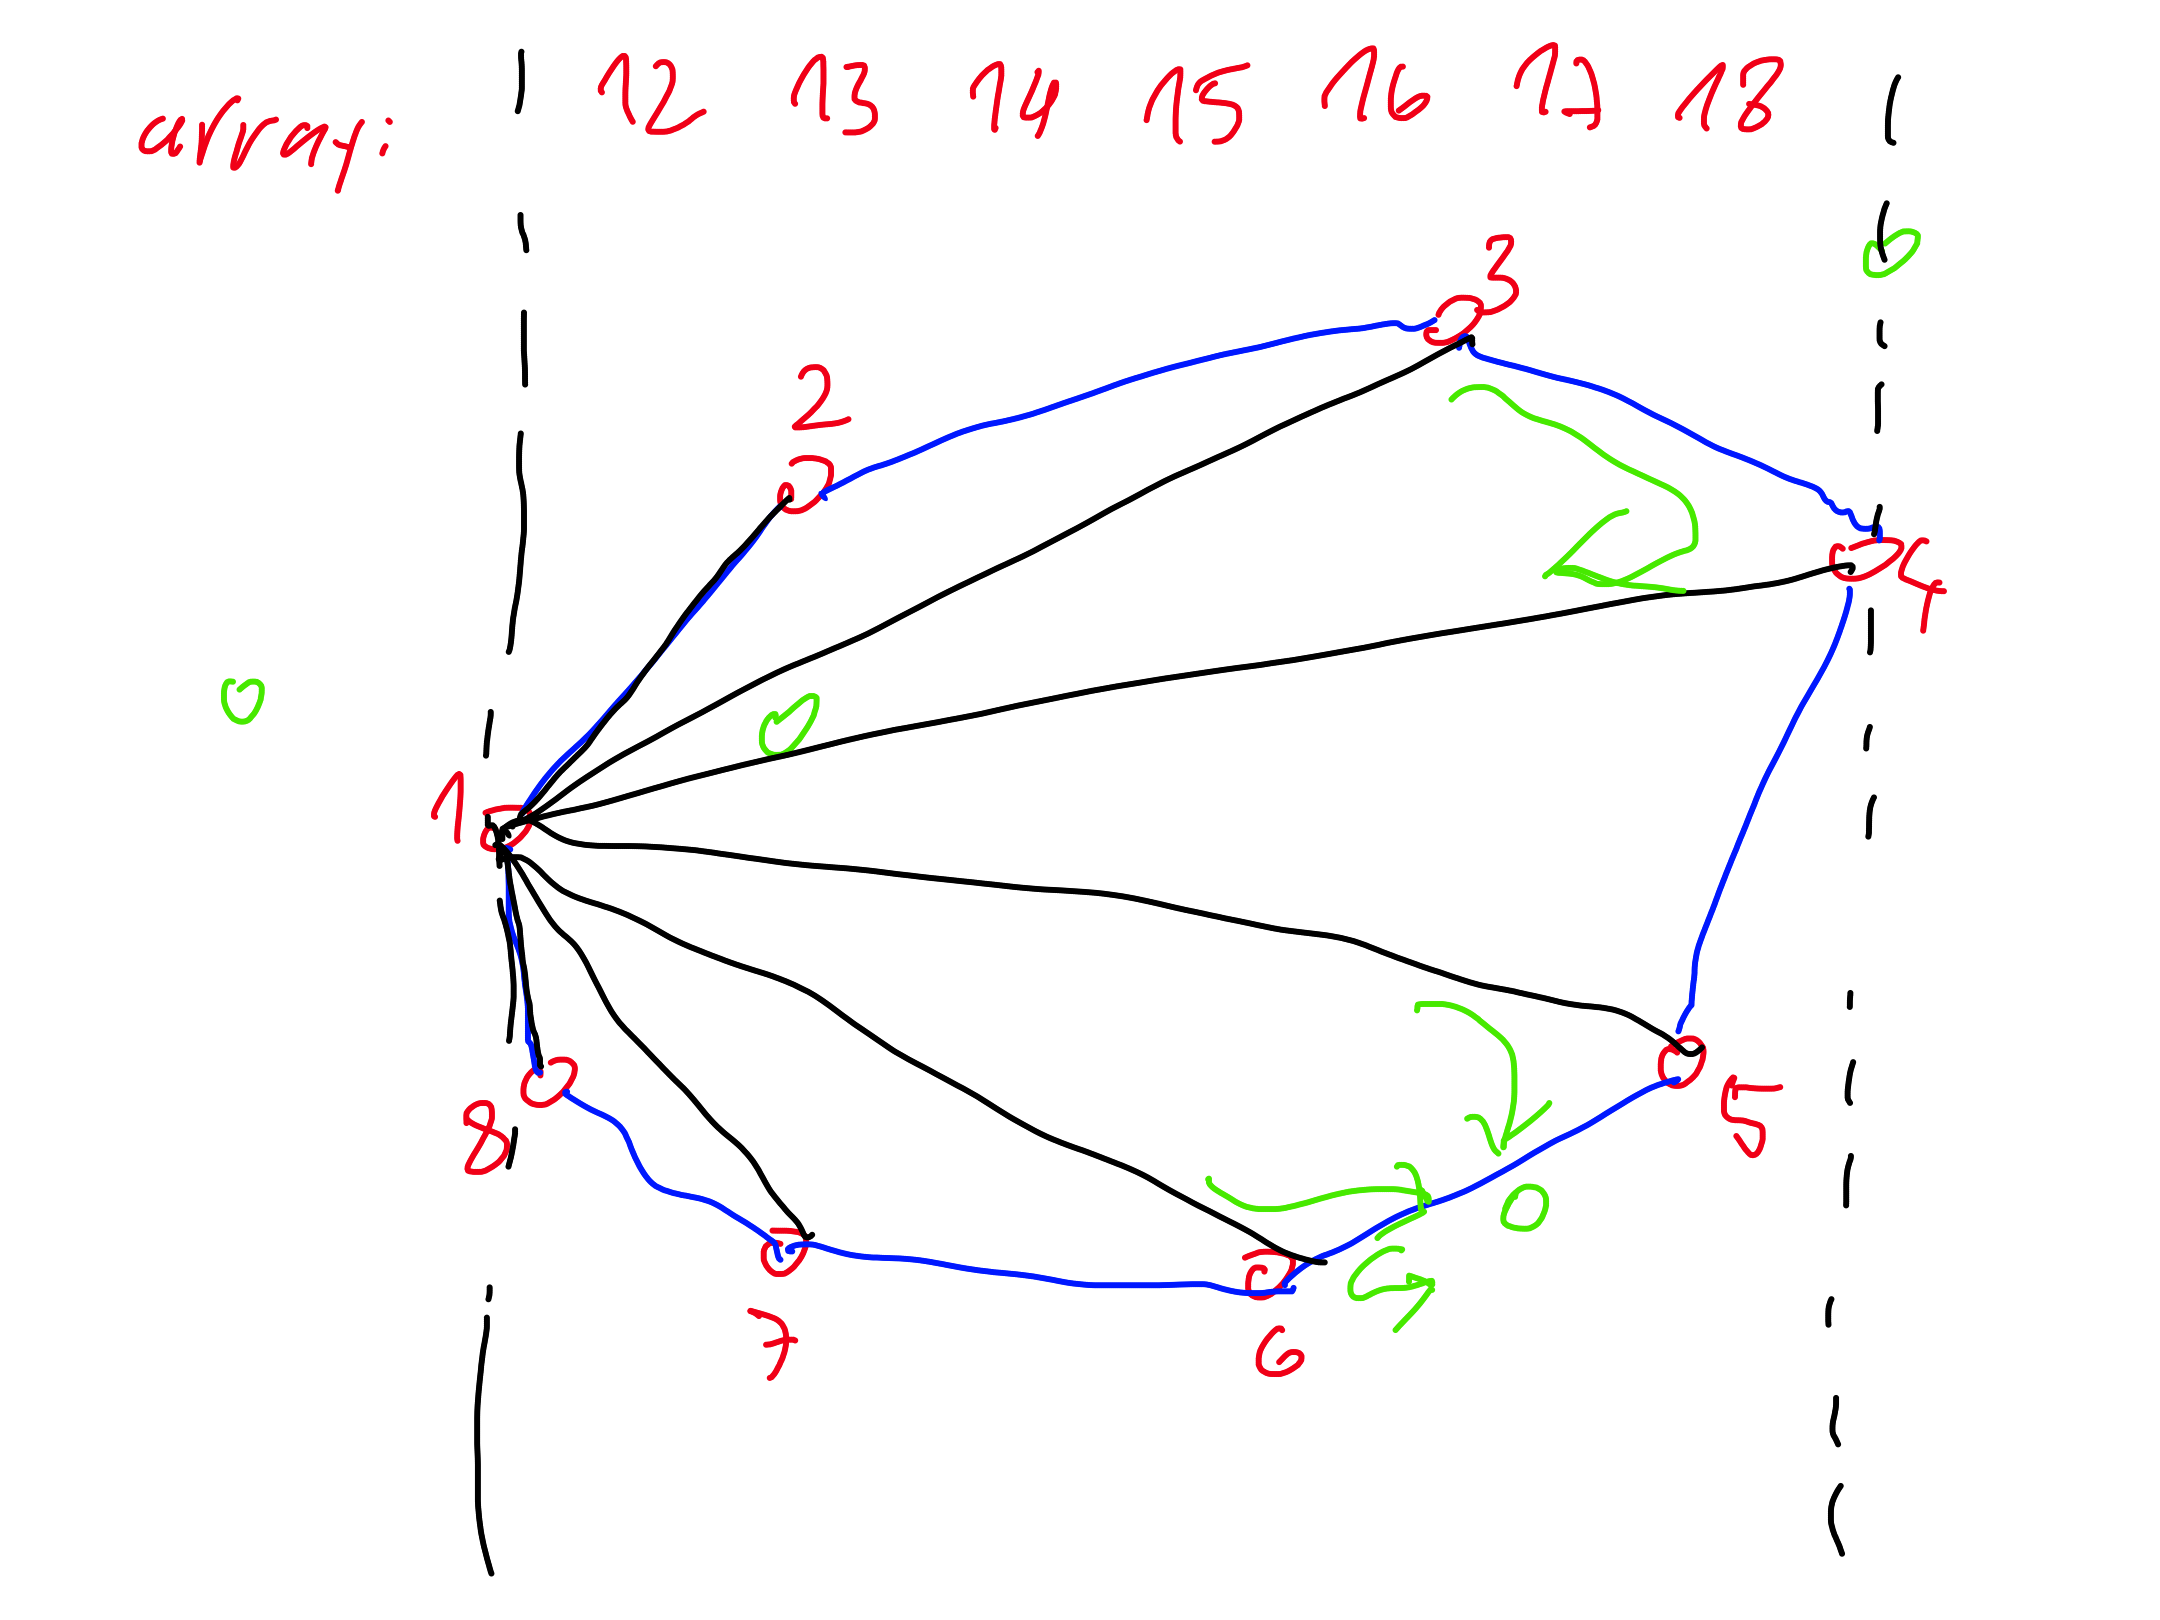 array: 12 13 14 15 16 17 18
3
2
4
1
5
8
7
6